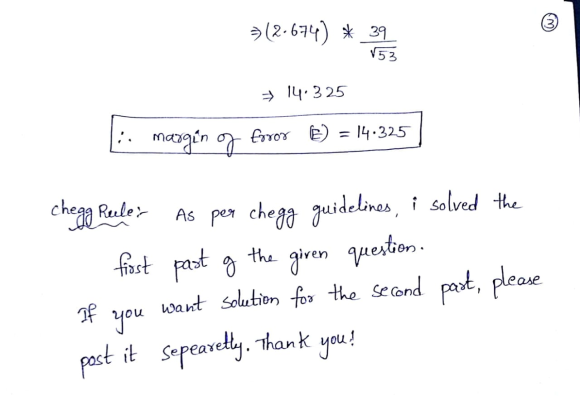 ③
⇒ (2.674) * 39/√53
⇒ 14.325
∴ margin of Error (E) = 14.325
Chegg Rule:- As per chegg guidelines, i solved the
first part of the given question.
If you want solution for the second part, please
post it sepearetly. Thank you!